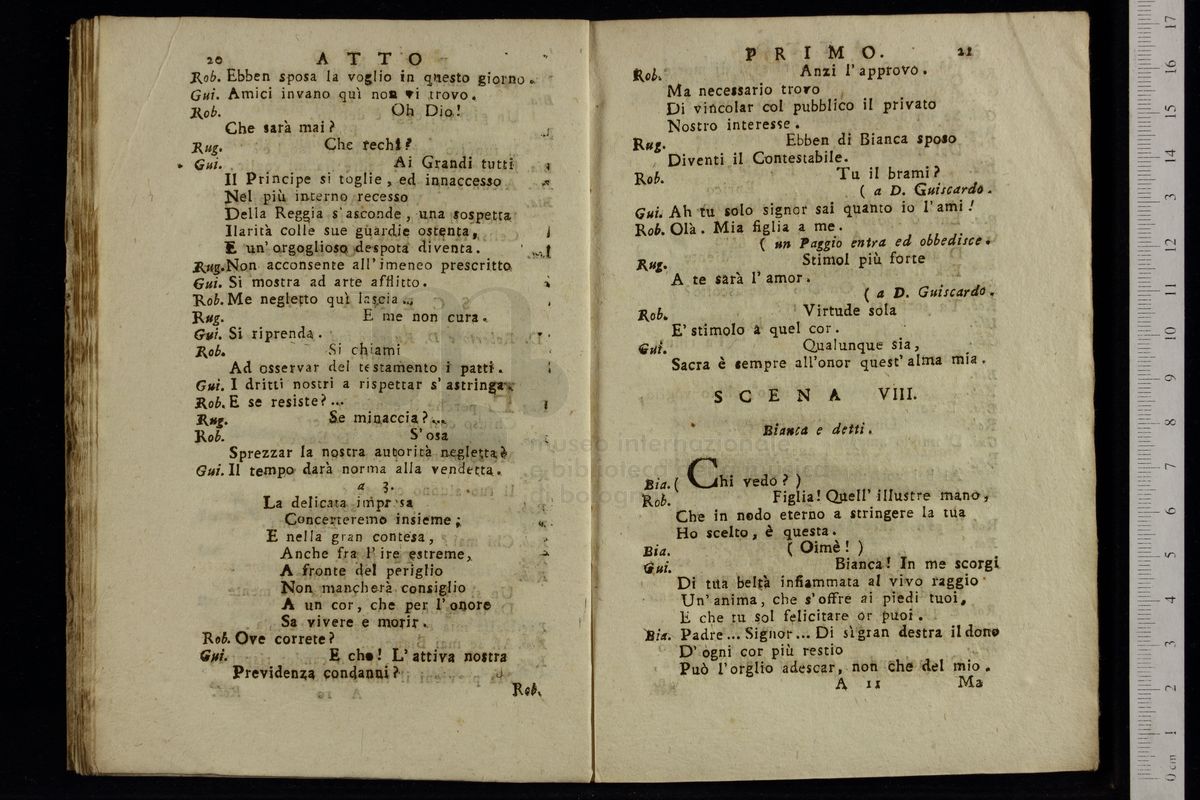 20 ATTO
Rob. Ebben sposa la voglio in questo giorno.
Gui. Amici invano quì non vi trovo.
Rob. Oh Dio!
Che sarà mai?
Rug. Che rechi?
Gui. Ai Grandi tutti
Il Principe si toglie, ed innaccesso
Nel più interno recesso
Della Reggia s'asconde, una sospetta
Ilarità colle sue guardie ostenta,
E un'orgoglioso despota diventa.
Rug. Non acconsente all'imeneo prescritto
Gui. Si mostra ad arte afflitto.
Rob. Me negletto quì lascia...
Rug. E me non cura.
Gui. Si riprenda.
Rob. Si chiami
Ad osservar del testamento i patti.
Gui. I dritti nostri a rispettar s'astringa.
Rob. E se resiste?...
Rug. Se minaccia?...
Rob. S'osa
Sprezzar la nostra autorità negletta?
Gui. Il tempo darà norma alla vendetta.
a 3.
La delicata impresa
Concerteremo insieme;
E nella gran contesa,
Anche fra l'ire estreme,
A fronte del periglio
Non mancherà consiglio
A un cor, che per l'onore
Sa vivere e morir.
Rob. Ove correte?
Gui. E che! L'attiva nostra
Previdenza condanni?
Rob.
PRIMO. 21
Rob. Anzi l'approvo.
Ma necessario trovo
Di vincolar col pubblico il privato
Nostro interesse.
Rug. Ebben di Bianca sposo
Diventi il Contestabile.
Rob. Tu il brami?
( a D. Guiscardo.
Gui. Ah tu solo signor sai quanto io l'ami!
Rob. Olà. Mia figlia a me.
( un Paggio entra ed obbedisce.
Rug. Stimol più forte
A te sarà l'amor.
( a D. Guiscardo.
Rob. Virtude sola
E' stimolo a quel cor.
Gui. Qualunque sia,
Sacra è sempre all'onor quest'alma mia.
SCENA VIII.
Bianca e detti.
Bia. ( Chi vedo? )
Rob. Figlia! Quell'illustre mano,
Che in nodo eterno a stringere la tua
Ho scelto, è questa.
Bia. ( Oimè! )
Gui. Bianca! In me scorgi
Di tua beltà infiammata al vivo raggio
Un'anima, che s'offre ai piedi tuoi,
E che tu sol felicitare or puoi.
Bia. Padre... Signor... Di sì gran destra il dono
D'ogni cor più restio
Può l'orglio adescar, non che del mio.
A 11 Ma
museo internazionale
e biblioteca della musica
di bologna